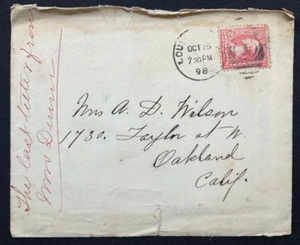 The last letter from
Mrs Dunn
OCT 15
7 30 PM
98
Mrs A. D. Wilson
1730. Taylor st W.
Oakland
Calif.